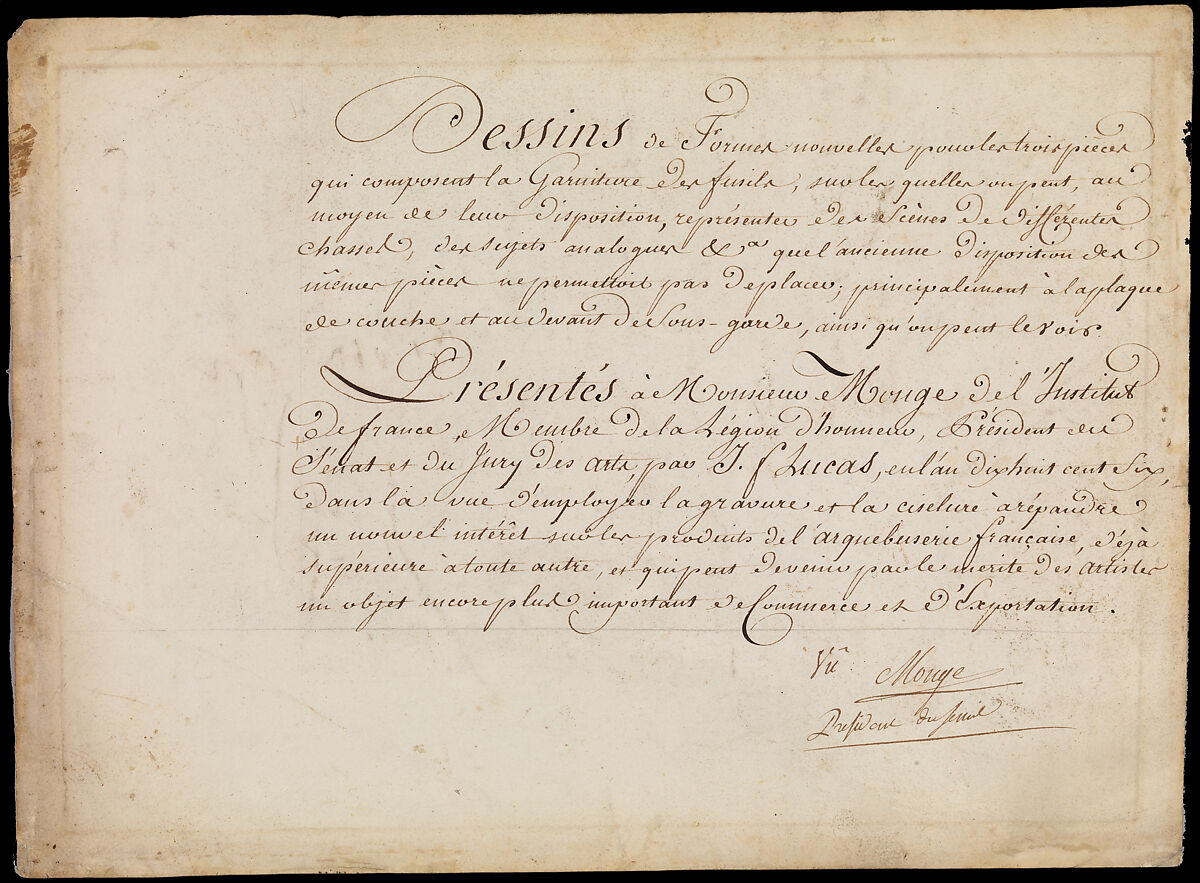 Dessins de Formes nouvelles pour les trois pièces
qui composent la Garniture des fusils, sur les quelles on peut, au
moyen de leur disposition, représenter des Scènes de différentes
chasses, des sujets analogues &a que l'ancienne disposition des
mêmes pièces ne permettoit pas de placer; principalement à la plaque
de couche et au devant de Sous-garde, ainsi qu'on peut le voir.
Présentés à Monsieur Monge de l'Institut
de france, Membre de la Légion d'honneur, Président du
Sénat et du Jury des arts, par J. f Lucas, en l'an dix huit cent Six,
dans la vue d'employer la gravure et la ciselure à répandre
un nouvel intérêt sur les produits de l'arquebuserie française, déjà
supérieure à toute autre, et qui peut devenir par le mérite des artistes
un objet encore plus important de Commerce et d'Exportation.
Vu Monge
President du senat